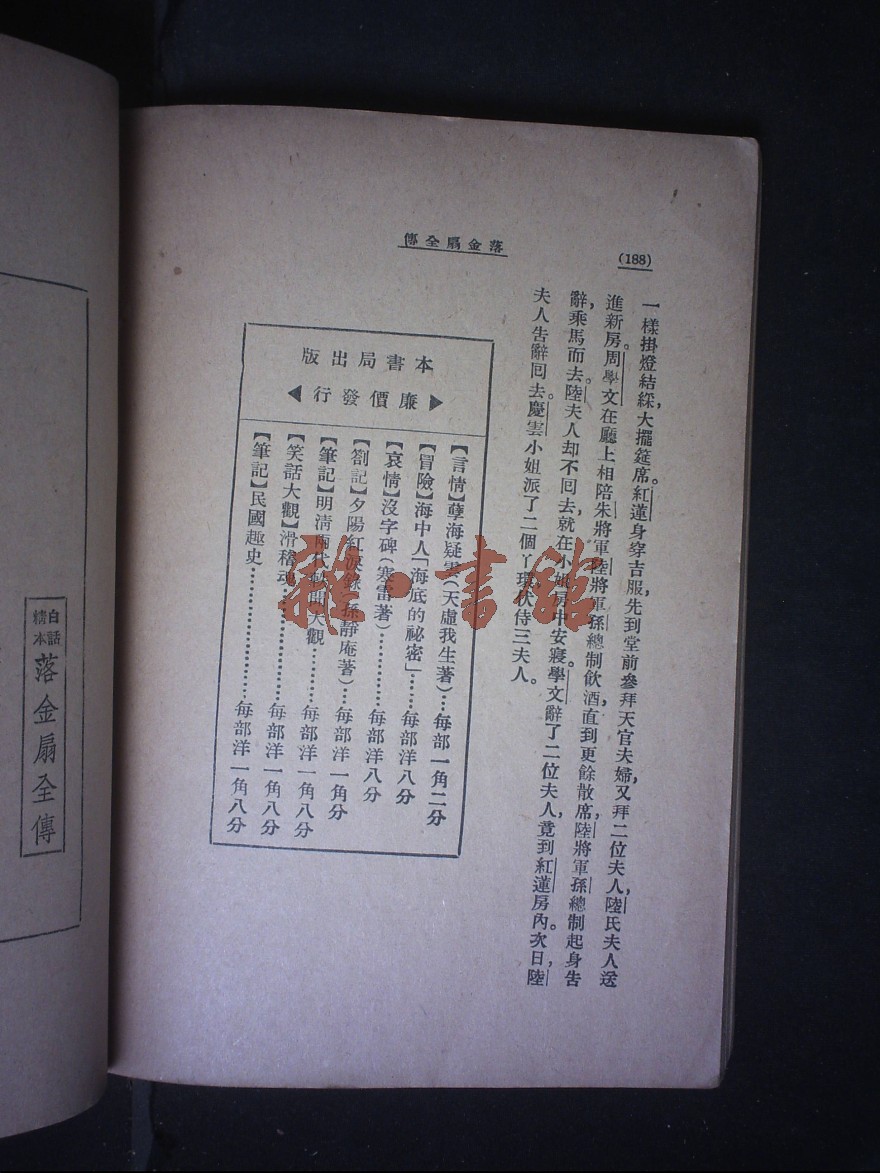 落金扇全傳
(188)
一樣掛燈結綵，大擺筵席。紅蓮身穿吉服，先到堂前參拜天官夫婦，又拜二位夫人，陸氏夫人送
進新房。周學文在廳上相陪朱將軍陸將軍孫總制飲酒，直到更餘散席，陸將軍孫總制起身告
辭，乘馬而去。陸夫人却不回去，就在小姐房中安寢。學文辭了二位夫人，竟到紅蓮房內。次日，陸
夫人告辭回去。慶雲小姐派了二個丫環，伏侍三夫人。
本書局出版
▶廉價發行◀
【言情】孽海疑雲（天虛我生著）…每部一角二分
【冒險】海中人「海底的祕密」……每部洋八分
【哀情】沒字碑（寒雷著）…………每部洋八分
【劄記】夕陽紅淚錄（孫靜庵著）…每部洋一角分
【筆記】明清兩代軼聞大觀………每部洋一角八分
【笑話大觀】滑稽魂………………每部洋一角八分
【筆記】民國趣史…………………每部洋一角八分
白話
精本
落金扇全傳
雜·書館